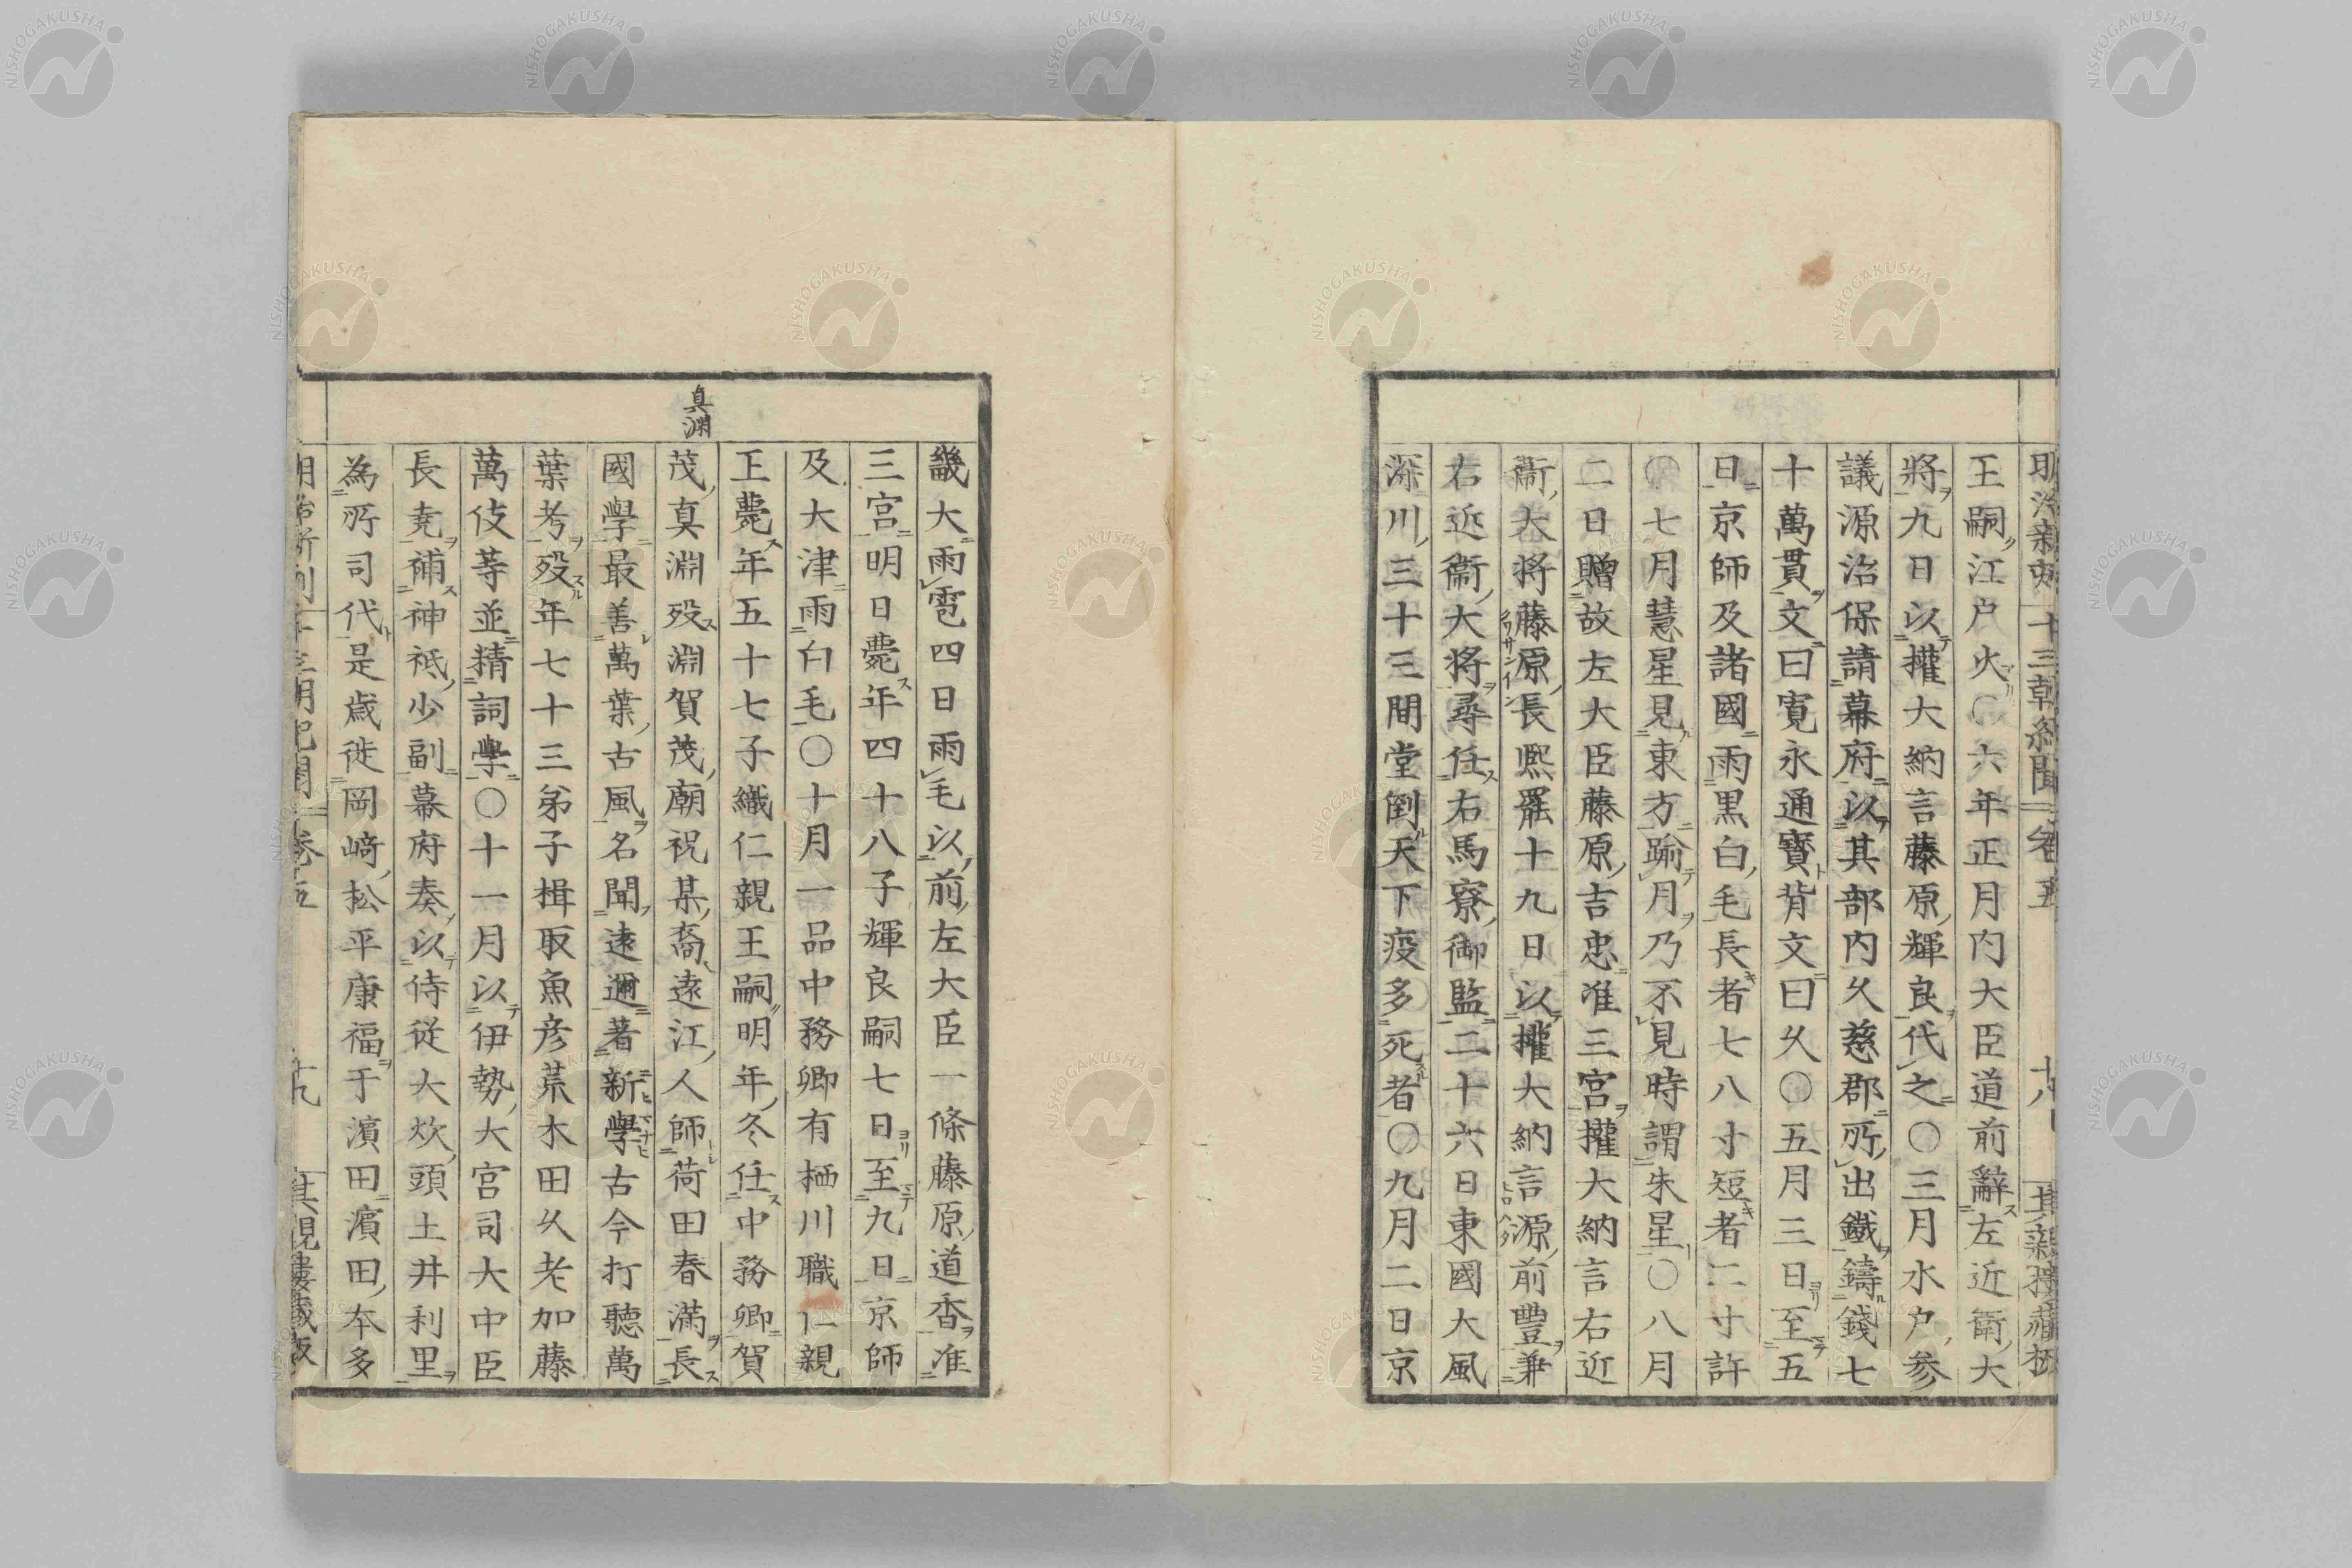 明治新刻 十三朝紀聞 卷五 十八 其親樓藏板
王嗣江戸火〇六年正月内大臣道前辭左近衛大
將九日以權大納言藤原輝良代之〇三月水戸参
議源治保請幕府以其部内久慈郡所出鐵鑄錢七
十萬貫文曰寛永通寳背文曰久〇五月三日至五
日京師及諸國雨黒白毛長者七八寸短者二寸許
〇七月慧星見東方踰月乃不見時謂朱星〇八月
二日贈故左大臣藤原吉忠准三宮權大納言右近
衞大将藤原長熙罷十九日以權大納言源前豐兼
右近衞大将尋任右馬寮御監二十六日東國大風
深川三十三間堂倒天下疫多死者〇九月二日京
畿大雨雹四日雨毛以前左大臣一條藤原道香准
三宮明日薨年四十八子輝良嗣七日至九日京師
及大津雨白毛〇十月一品中務卿有栖川職仁親
王薨年五十七子織仁親王嗣明年冬任中務卿賀
真渊
茂真淵殁淵賀茂廟祝某裔遠江人師荷田春満長
國學最善萬葉古風名聞遠邇著新學古今打聽萬
葉考殁年七十三弟子楫取魚彦荒木田久老加藤
萬伎等並精詞學〇十一月以伊勢大宮司大中臣
長尭補神祗少副幕府奏以侍從大炊頭土井利里
為所司代是歳徙岡﨑松平康福于濱田濱田本多
明治新刻 十三朝紀聞 卷五 十九 其親樓藏板